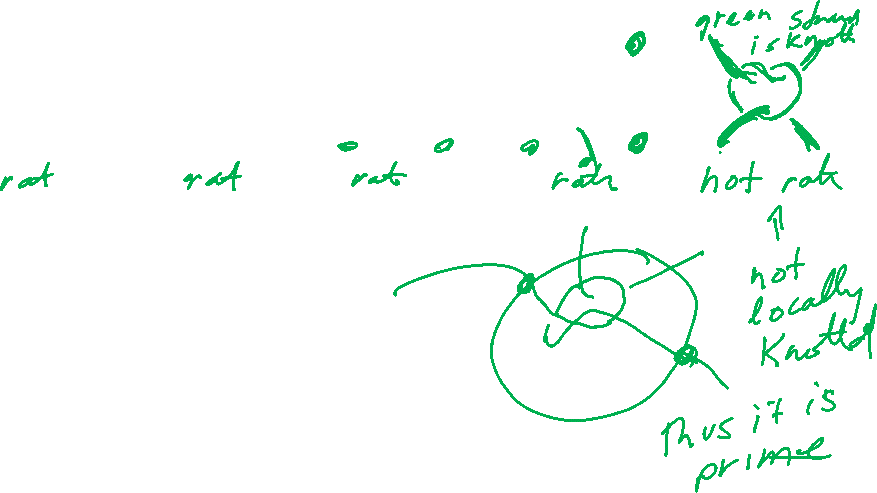 green strand
is knott
rat rat rat rath not rath
not
locally
Knotted
Thus it is
prime